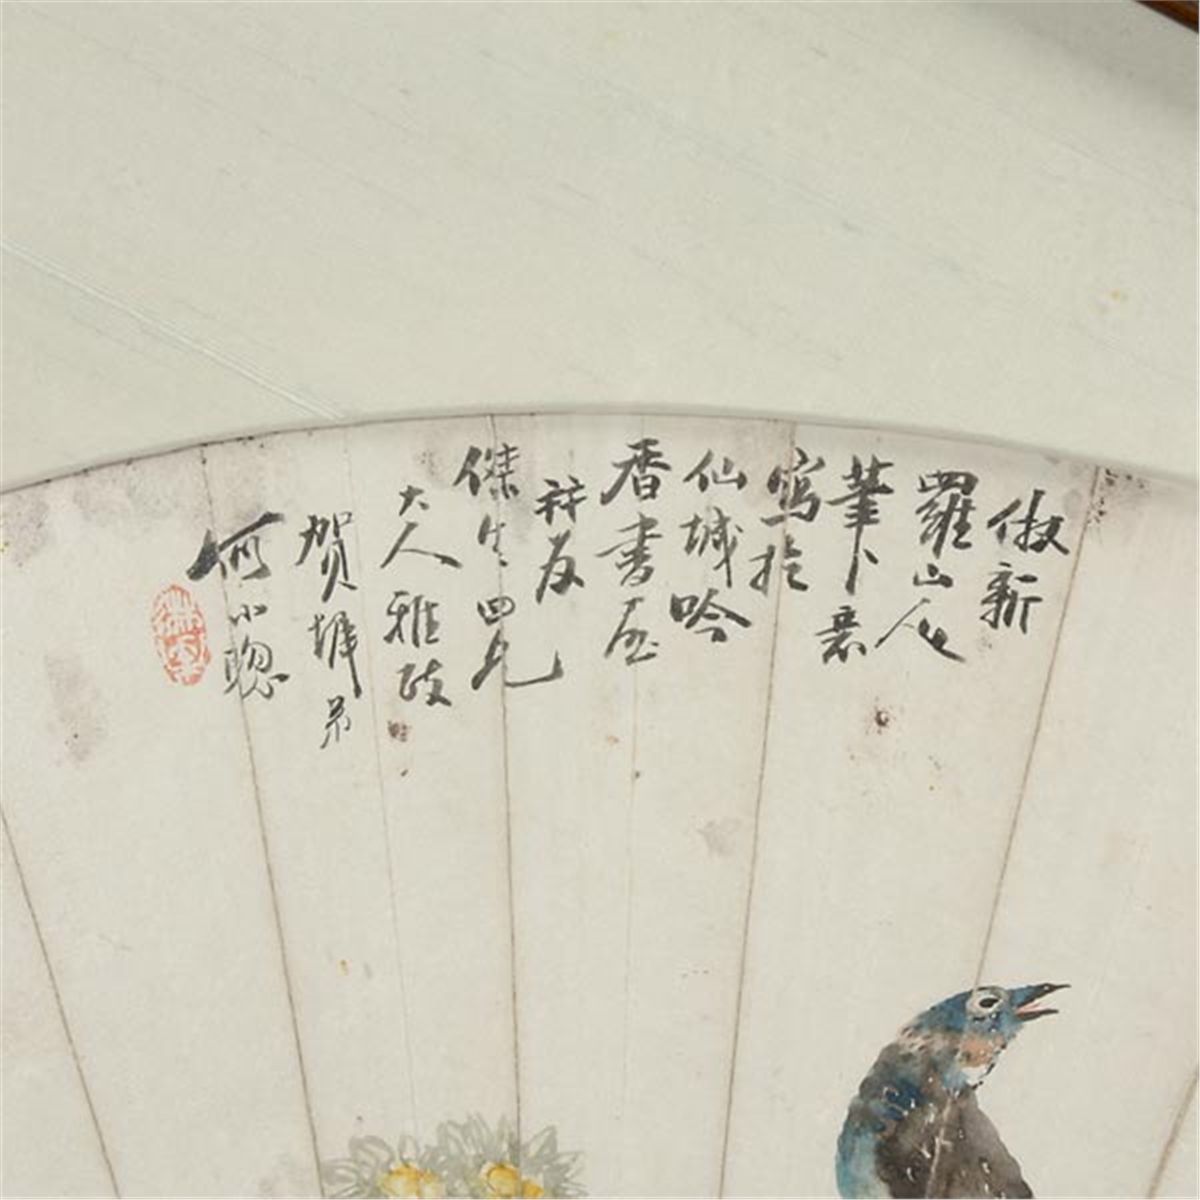 倣新
羅山人
筆卜意
寫於
仙城吟
香書屋
祥友
傑生四兄
大人雅政
賀墀弟
何小聰